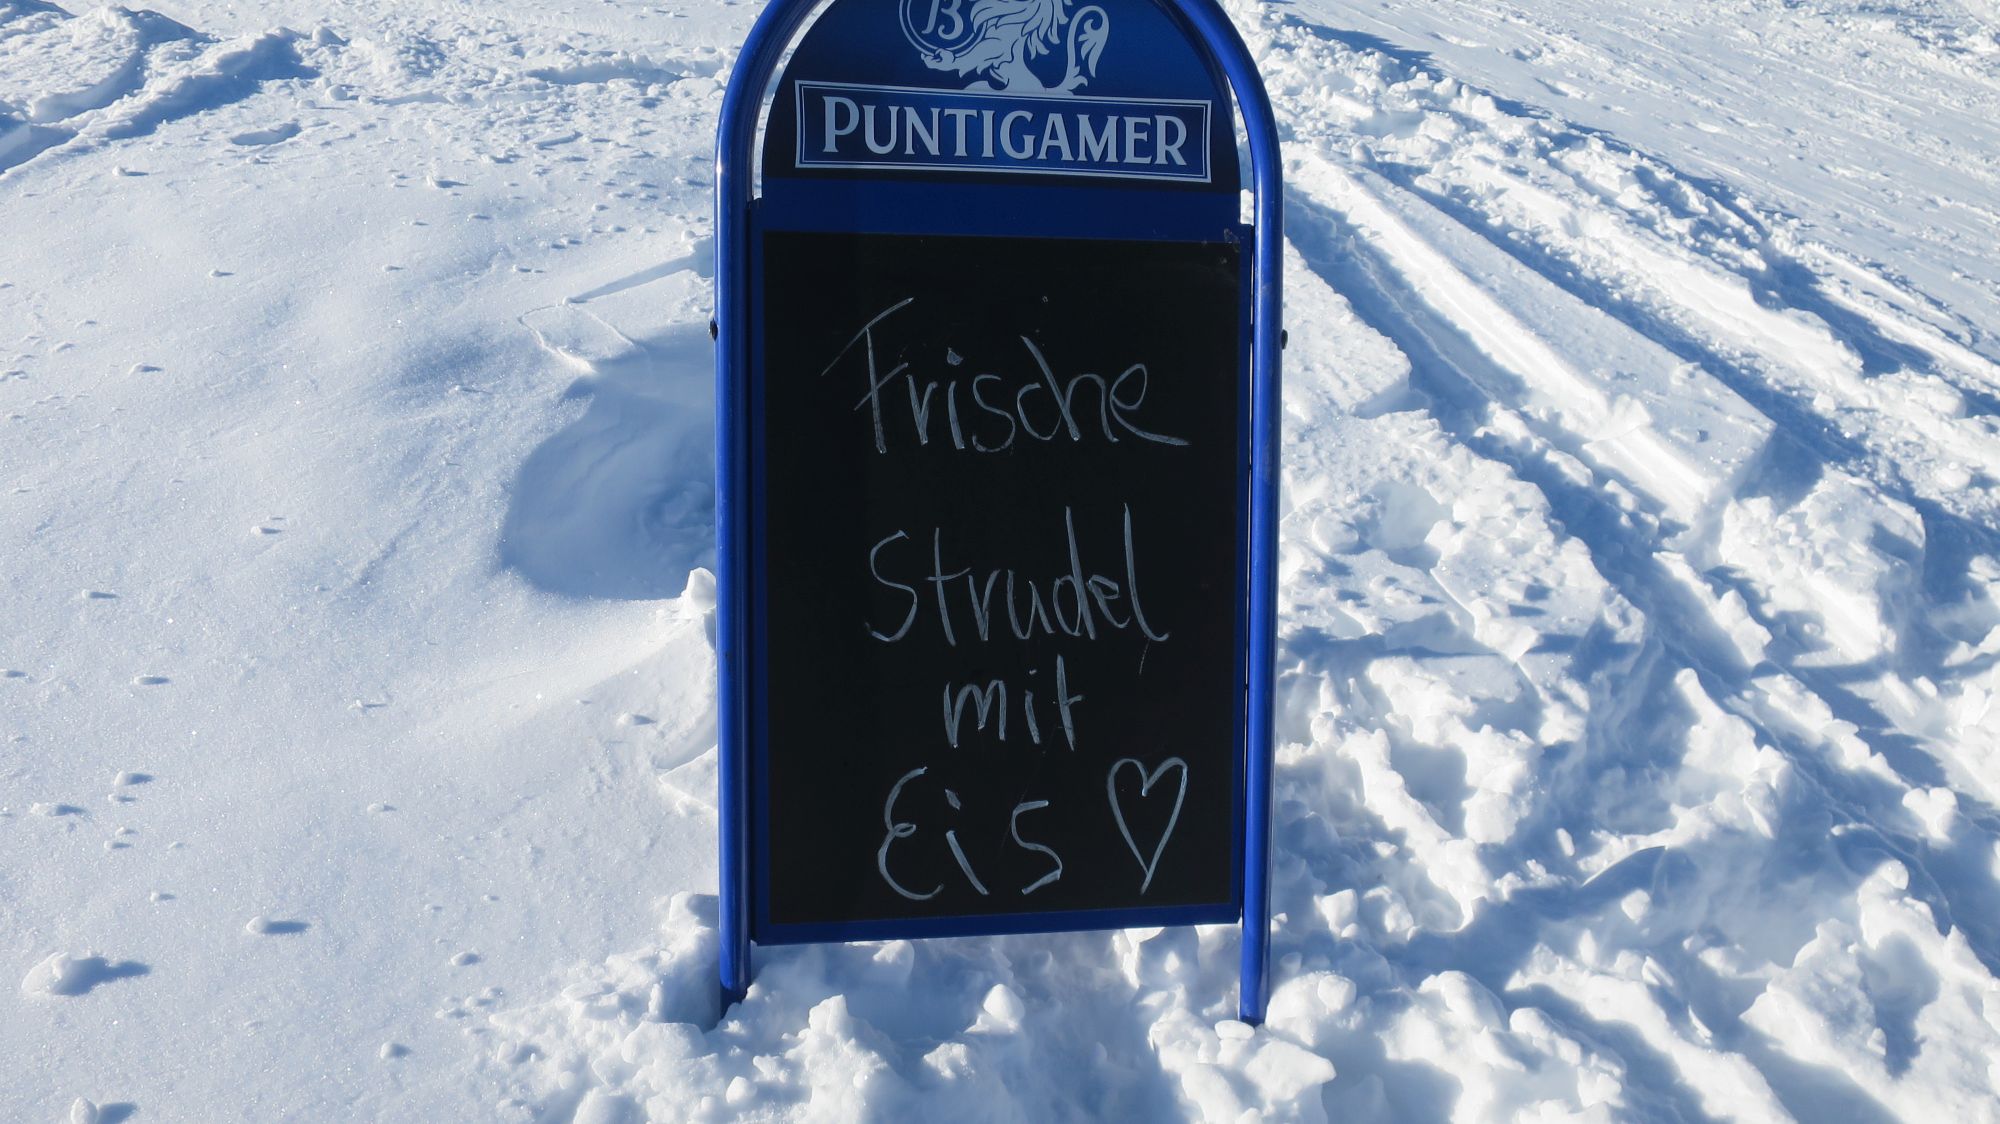 B
PUNTIGAMER
Frische
Strudel
mit
Eis ♡